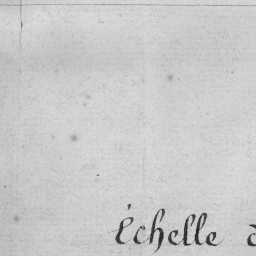 échelle